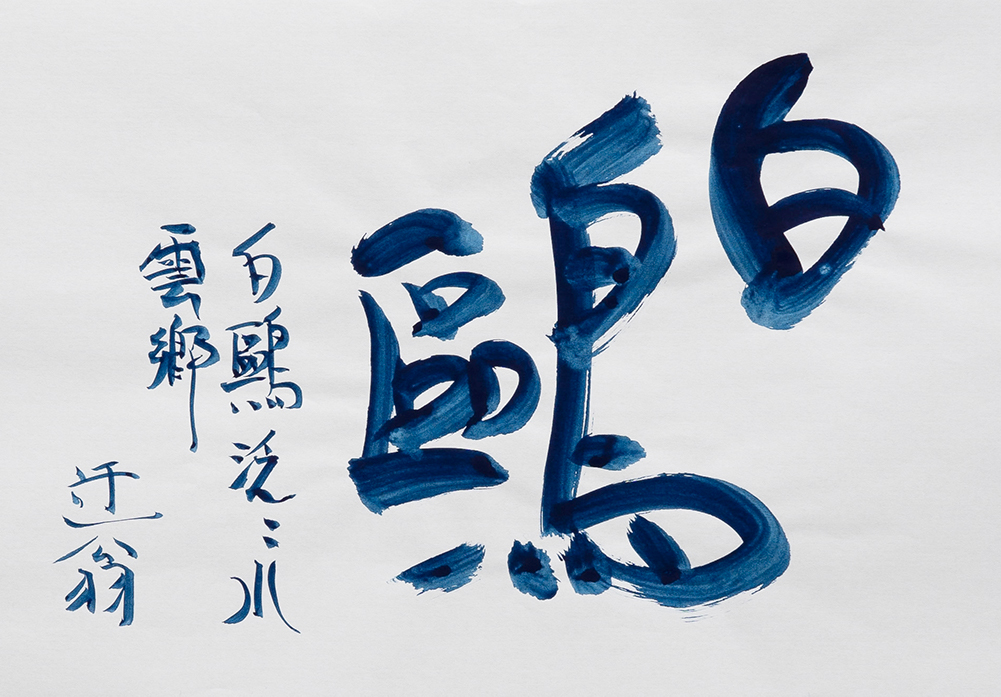 白鷗
白鷗〻水
雲鄉
迂翁